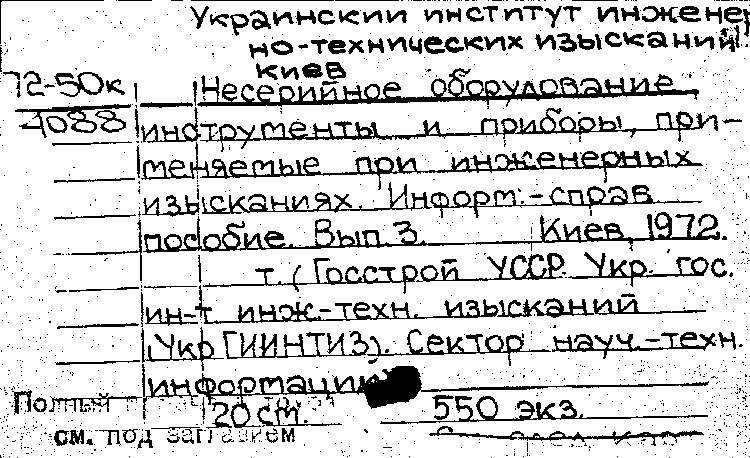 Украинский институт инженер
но-технических изысканий
Киев
72-50к Несерийное оборудование,
4088 инструменты и приборы, при-
меняемые при инженерных
изысканиях. Информ.-справ
пособие. Вып. 3. Киев, 1972.
т. (Госстрой УССР. Укр. гос.
ин-т инж.-техн. изысканий
(УкрГИИНТИЗ). Сектор науч.-техн.
информации
Полный
20 cm. 550 экз.
см. под заглавием